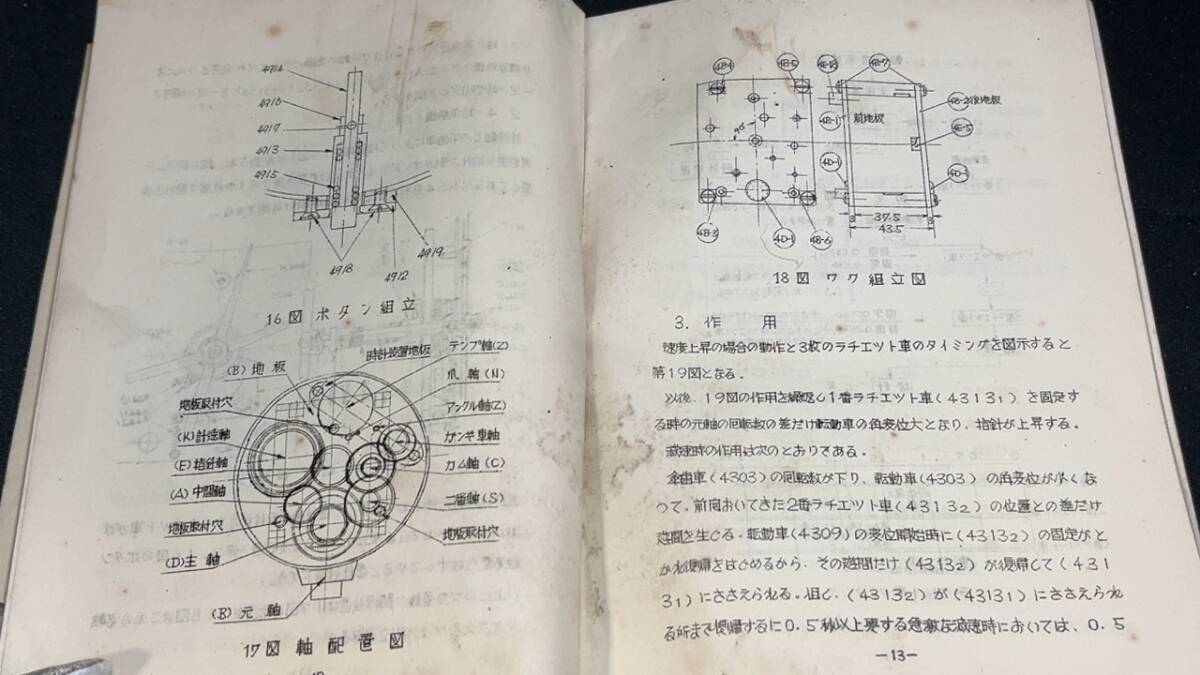 4914
4916
4917
4913
4915
4918
4912
4919
16図 ボタン組立
時計装置地板
テンプ軸(Z)
(B) 地板
爪軸(N)
地板取付穴
アンクル軸(Z)
(K)計送軸
ガンギ車軸
(F)指針軸
カム軸(C)
(A)中間軸
二番軸(S)
地板取付穴
地板取付穴
(D)主軸
(E)元軸
17図 軸配置図
4B-4
4B-5
4B-7
4B-1
前地板
4B-2後地板
4E-5
4D-1
37.5
3
3
43.5
4B-3
4D-1
4B-6
18図 ワク組立図
3. 作 用
速度上昇の場合の動作と3枚のラチエツト車のタイミングを図示すると
第19図となる.
以後.19図の作用を繰返し1番ラチエツト車(43131)を固定す
る時の元軸の回転数の差だけ転動車の角変位大となり、指針が上昇する。
減速時の作用は次のとおりである.
傘歯車(4303)の回転数が下り、転動車(4303)の角変位が小くな
つて.前回おいてきた2番ラチエツト車(43132)の位置との差だけ
遊間を生じる.転動車(4309)の変位開始時に(43132)の固定がと
かれ復帰をはじめるから.その遊間だけ(43132)が復帰して(431
31)にささえられる.但し.(43132)が(43131)にささえられ
る所まで復帰するに0.5秒以上要する急激な減速時においては、0.5
-13-